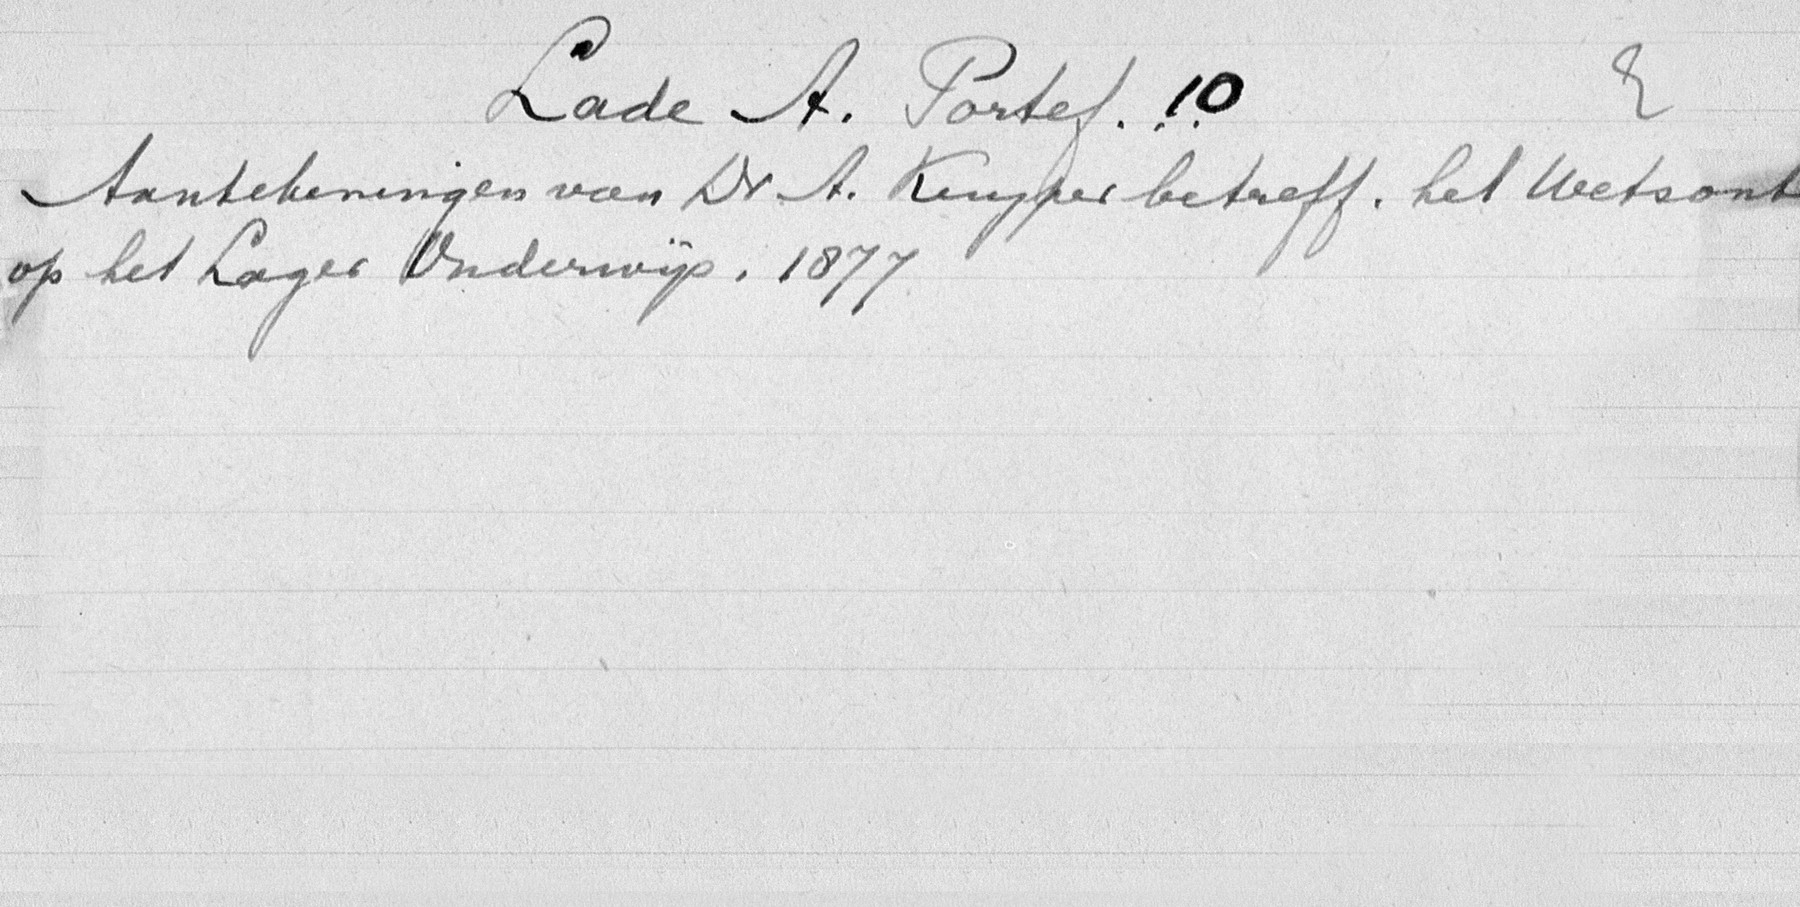 Lade A. Portef. 10
Aanteekeningen van Dr A. Kuyper betreff. het Wetsont
op het Lager Onderwijs. 1877